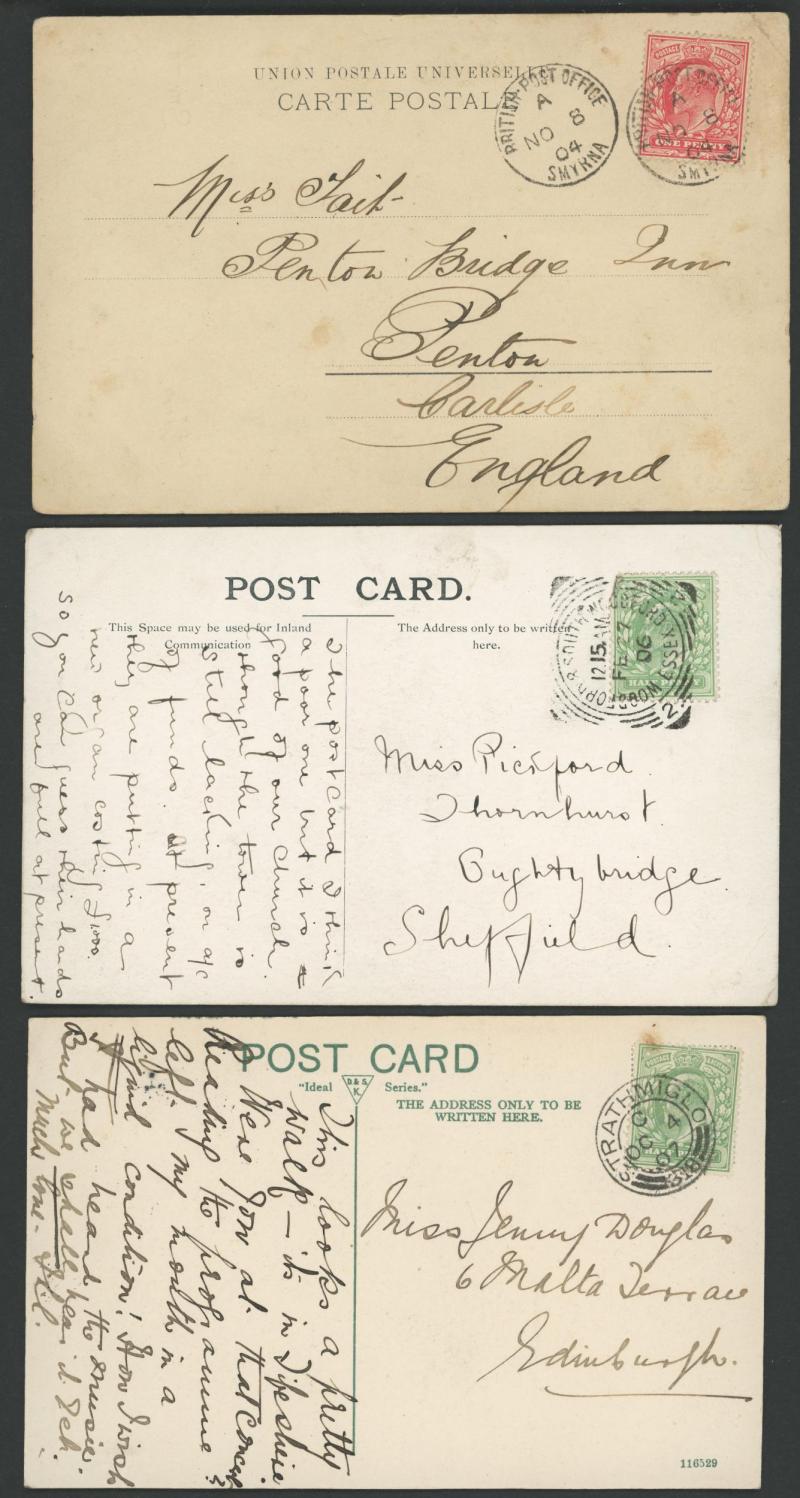 UNION POSTALE UNIVERSELLE
CARTE POSTALE
BRITISH-POST OFFICE
A 8
NO
04
SMYRNA
BRITISH-POST OFFICE
A 8
NO
04
SMYRNA
POSTAGE
ONE PENNY
Miss Tait
Penton Bridge Inn
Penton
Carlisle
England
POST CARD.
This Space may be used for Inland
Communication
The Address only to be written
here.
12.15AM
FE 7
06
ESSEX
HALF PENNY
The postcard I think
a poor one but it is a
good of our church.
though the tower is
still lacking, on a/c
of funds. At present
they are putting in a
new organ costing £1000.
so you can guess their hands
are full at present.
Miss Pickford
Thornhurst.
Oughtybridge
Sheffield.
POST CARD
"Ideal
D.& S.
K.
Series."
THE ADDRESS ONLY TO BE
WRITTEN HERE.
STRATHMIGLO
C
OC 4
07
318
This looks a pretty
walk — its in Fifeshire
Were you at that concert
Reading the programme
left my mouth in a
liquid condition! How I wish
I had heard the music.
But we shall hear it
Much love -
Miss Jenny Douglas
6 Malta Terrace
Edinburgh.
116529